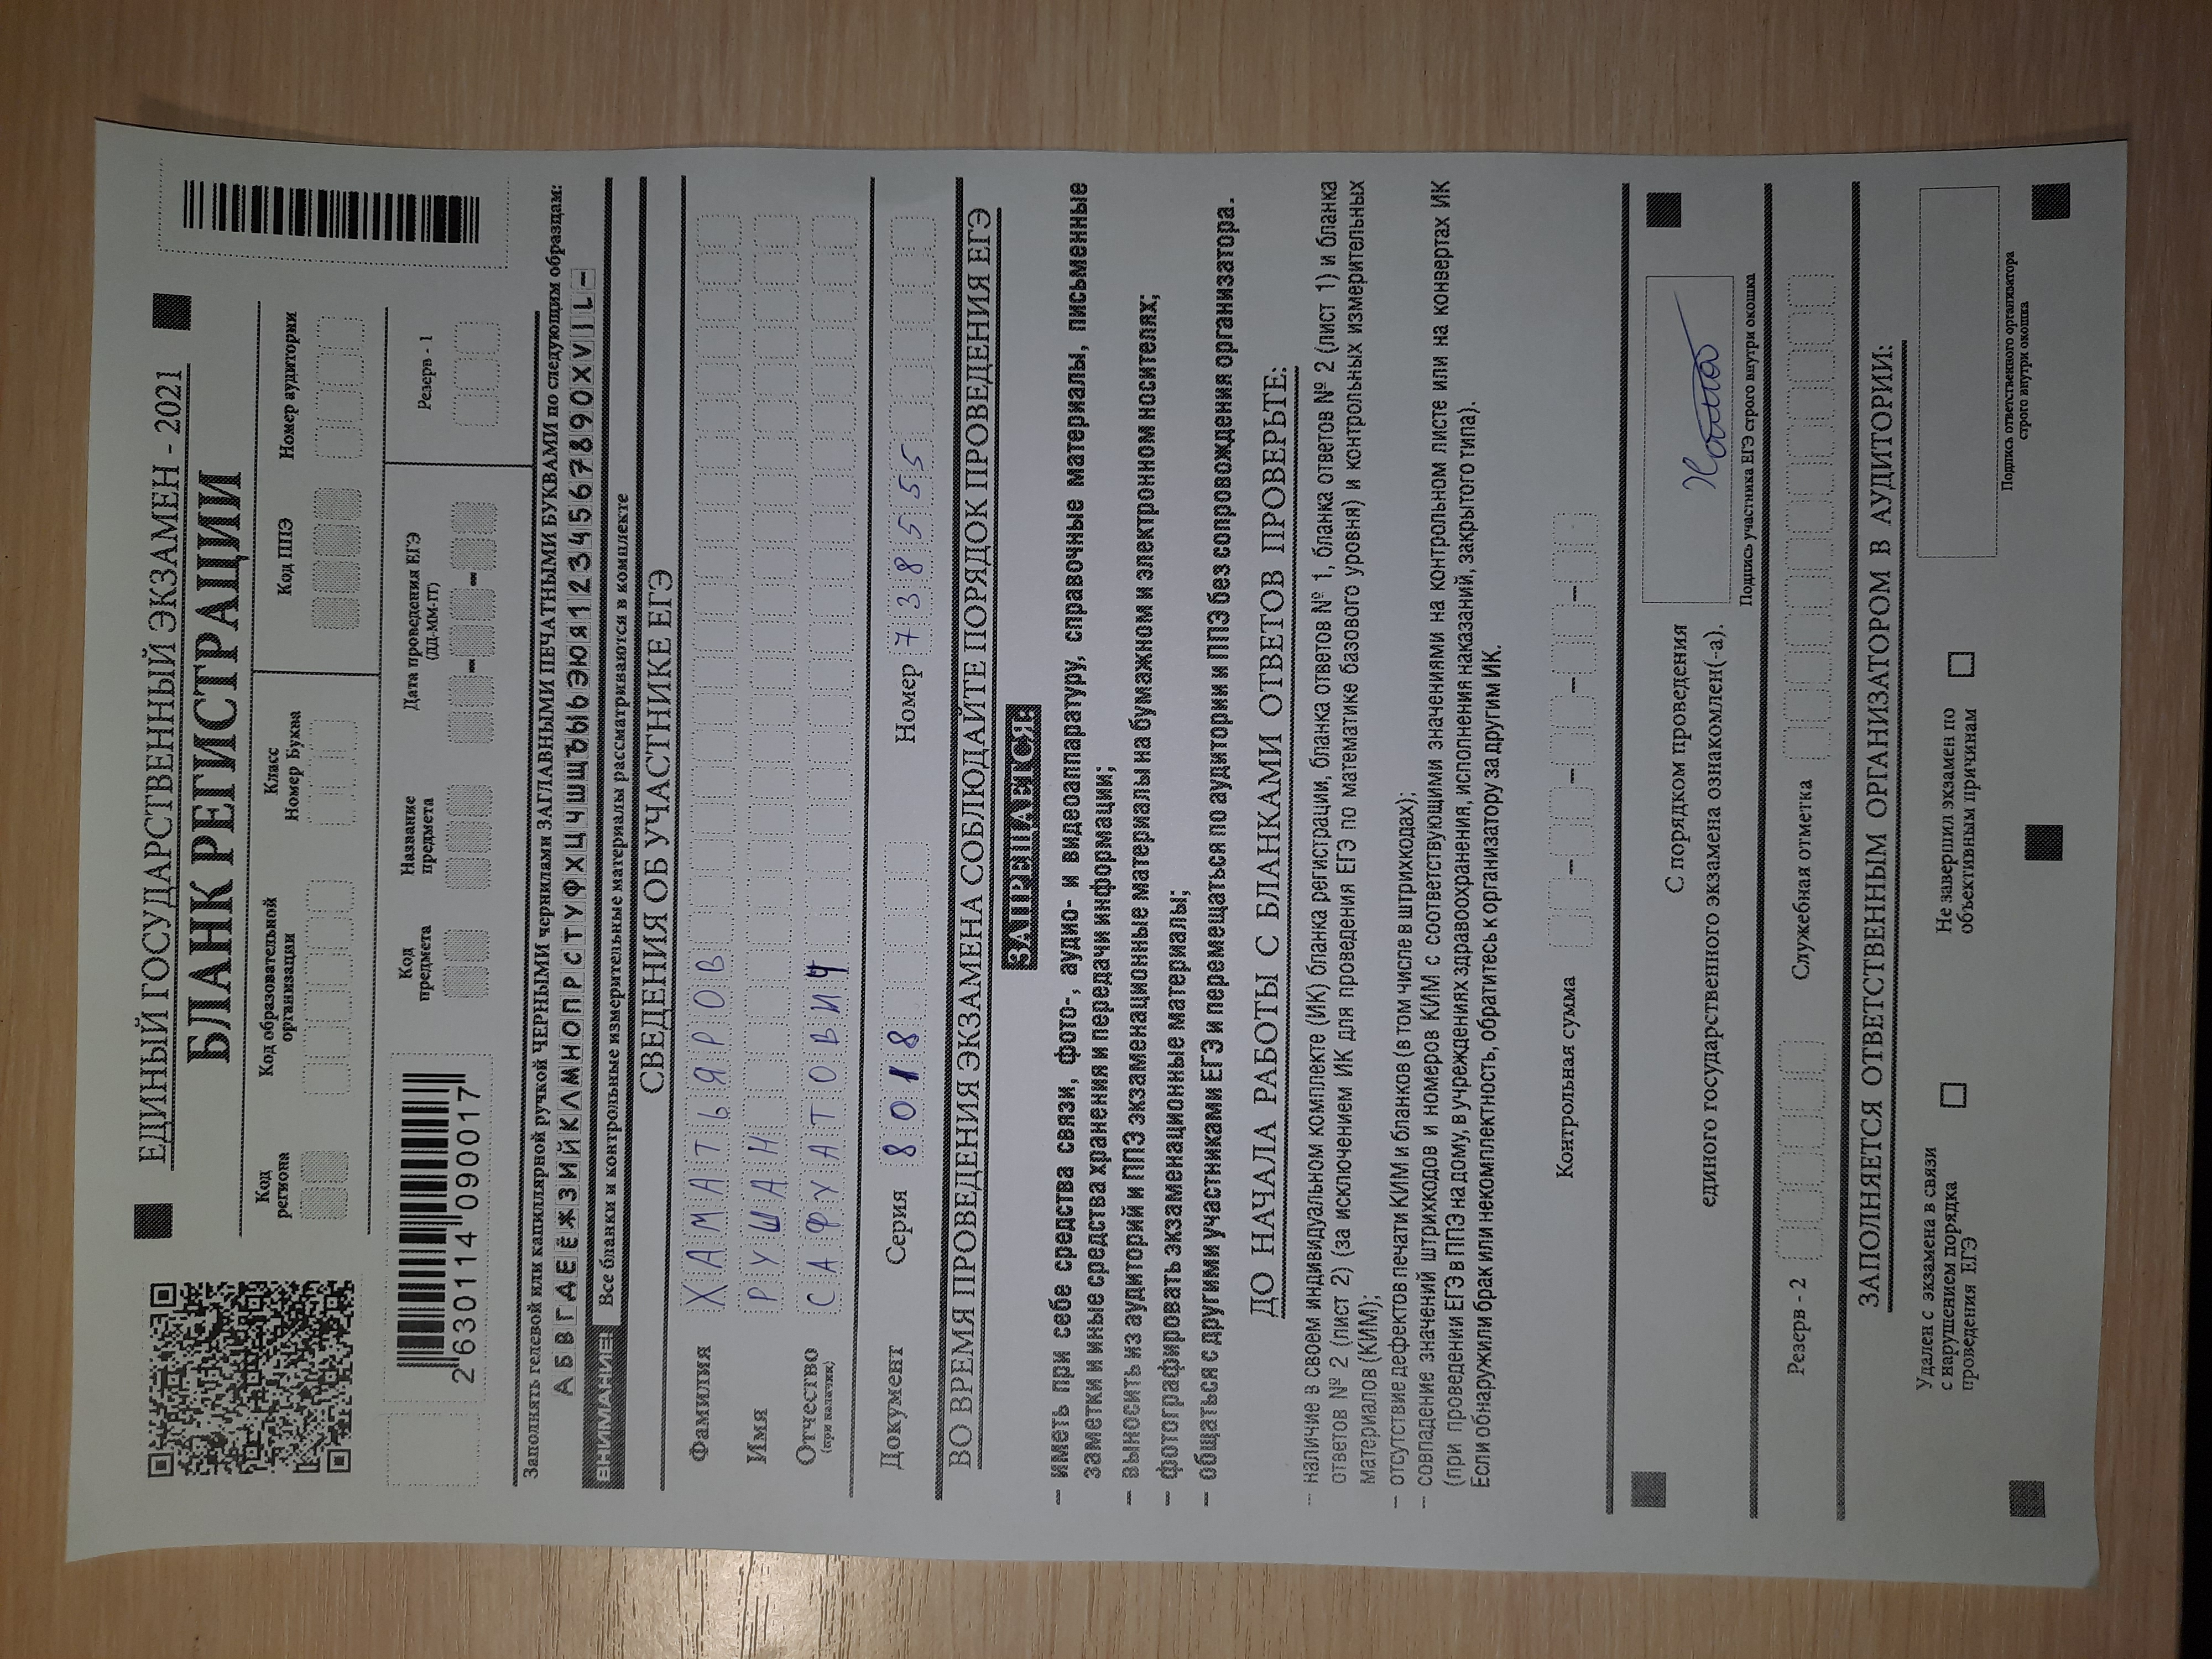 ЕДИНЫЙ ГОСУДАРСТВЕННЫЙ ЭКЗАМЕН - 2021
БЛАНК РЕГИСТРАЦИИ
Код региона
Код образовательной организации
Класс
Номер Буква
Код ППЭ
Номер аудитории
2 630114 090017
Код предмета
Название предмета
Дата проведения ЕГЭ
(ДД-ММ-ГГ)
Резерв - 1
Заполнять гелевой или капиллярной ручкой ЧЕРНЫМИ чернилами ЗАГЛАВНЫМИ ПЕЧАТНЫМИ БУКВАМИ по следующим образцам:
А Б В Г Д Е Ё Ж З И Й К Л М Н О П Р С Т У Ф Х Ц Ч Ш Щ Ъ Ы Ь Э Ю Я 1 2 3 4 5 6 7 8 9 0 X V I L -
ВНИМАНИЕ! Все бланки и контрольные измерительные материалы рассматриваются в комплекте
СВЕДЕНИЯ ОБ УЧАСТНИКЕ ЕГЭ
Фамилия ХАМАТЬЯРОВ
Имя РУШАН
Отчество САФУАТОВИЧ
(при наличии)
Документ Серия 8018 Номер 738555
ВО ВРЕМЯ ПРОВЕДЕНИЯ ЭКЗАМЕНА СОБЛЮДАЙТЕ ПОРЯДОК ПРОВЕДЕНИЯ ЕГЭ
ЗАПРЕЩАЕТСЯ:
– иметь при себе средства связи, фото-, аудио- и видеоаппаратуру, справочные материалы, письменные
заметки и иные средства хранения и передачи информации;
– выносить из аудиторий и ППЭ экзаменационные материалы на бумажном и электронном носителях;
– фотографировать экзаменационные материалы;
– общаться с другими участниками ЕГЭ и перемещаться по аудитории и ППЭ без сопровождения организатора.
ДО НАЧАЛА РАБОТЫ С БЛАНКАМИ ОТВЕТОВ ПРОВЕРЬТЕ:
– наличие в своем индивидуальном комплекте (ИК) бланка регистрации, бланка ответов № 1, бланка ответов № 2 (лист 1) и бланка
ответов № 2 (лист 2) (за исключением ИК для проведения ЕГЭ по математике базового уровня) и контрольных измерительных
материалов (КИМ);
– отсутствие дефектов печати КИМ и бланков (в том числе в штрихкодах);
– совпадение значений штрихкодов и номеров КИМ с соответствующими значениями на контрольном листе или на конвертах ИК
(при проведении ЕГЭ в ППЭ на дому, в учреждениях здравоохранения, исполнения наказаний, закрытого типа).
Если обнаружили брак или некомплектность, обратитесь к организатору за другим ИК.
Контрольная сумма
С порядком проведения
единого государственного экзамена ознакомлен(-а).
Подпись участника ЕГЭ строго внутри окошка
Резерв - 2 Служебная отметка
ЗАПОЛНЯЕТСЯ ОТВЕТСТВЕННЫМ ОРГАНИЗАТОРОМ В АУДИТОРИИ:
Удален с экзамена в связи
с нарушением порядка
проведения ЕГЭ
Не завершил экзамен по
объективным причинам
Подпись ответственного организатора
строго внутри окошка